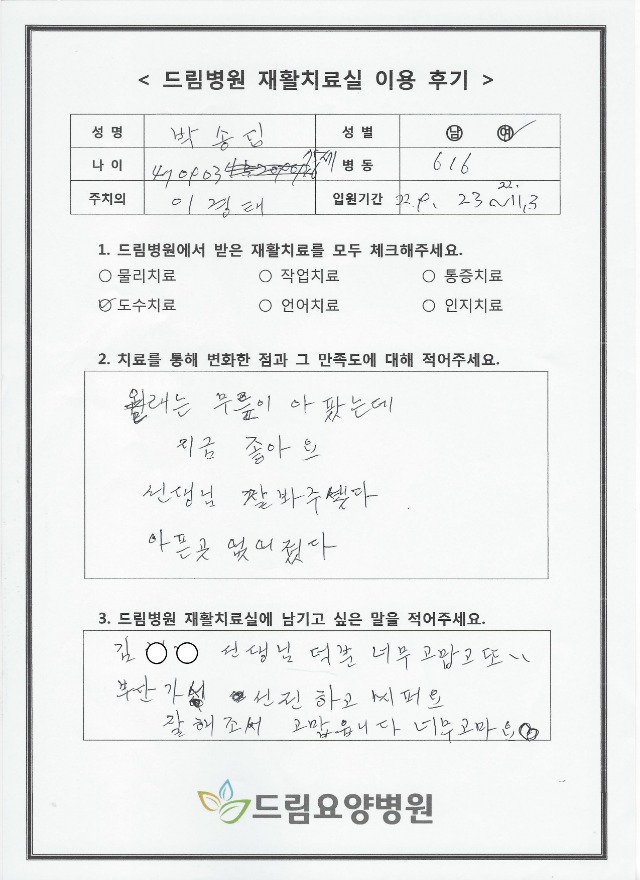 < 드림병원 재활치료실 이용 후기 >
성 명 박 송 림 성 별 남 여
나 이 470903 75세 병 동 616
주치의 이 경 태 입원기간 22.9. 23 ~ 22. 11,3
1. 드림병원에서 받은 재활치료를 모두 체크해주세요.
물리치료 작업치료 통증치료
도수치료 언어치료 인지치료
2. 치료를 통해 변화한 점과 그 만족도에 대해 적어주세요.
원래는 무릎이 아 팠는데
지금 좋아 요
선생님 잘봐주셋다
아픈곳 없어졌다
3. 드림병원 재활치료실에 남기고 싶은 말을 적어주세요.
김 ○○ 선생님 덕분 너무고맙고또..
부산가서 선전 하고 씨퍼요
잘해조써 고맙읍니다 너무고마요
드림요양병원